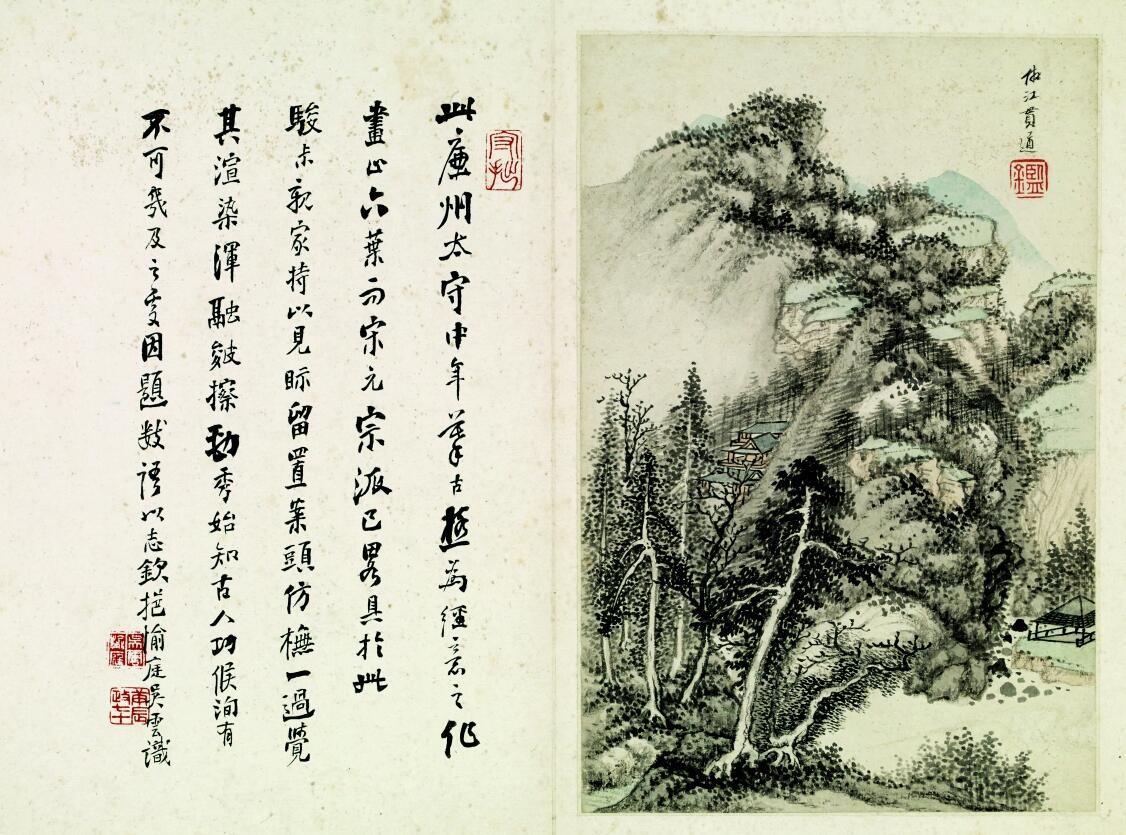 仿江貫道
鑑
守拙
此廉州太守中年筆古極為經意之作
畫止六葉而宋元宗派已畧具於此
駿叔親家持以見眎留置案頭仿橅一過覺
其渲染渾融皴擦勁秀始知古人功候洵有
不可幾及之處因題數語以志欽挹愉庭吳雲識